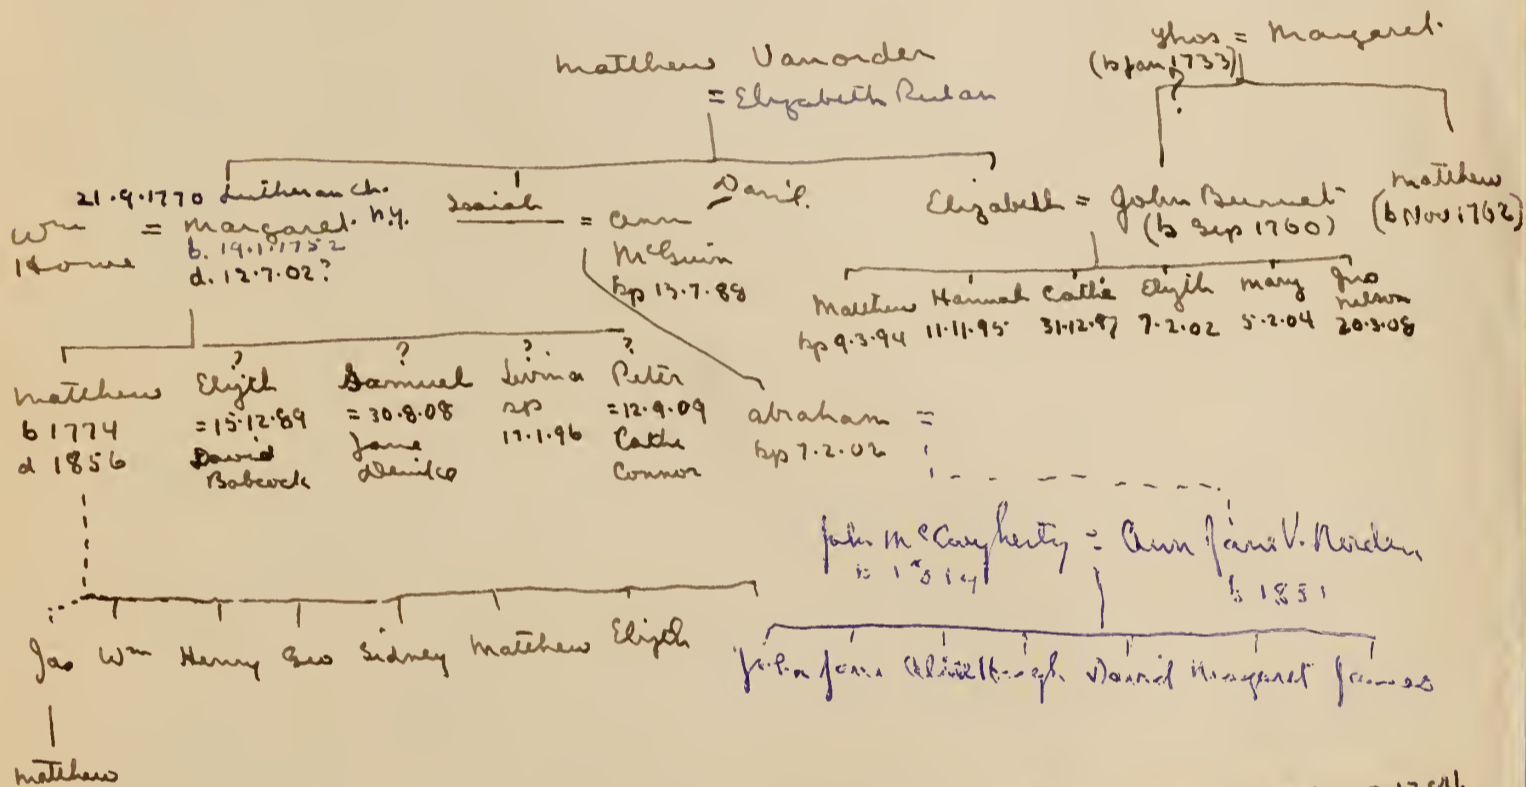 Matthew Vanorder
= Elizabeth Rulan
Thos = Margaret.
(b Jan 1733)
?
21.9.1770 Lutheran Ch.
N.Y.
Wm Howe = Margaret.
b. 19.1.1752
d. 12.7.02?
Isaiah = Ann
McGuin
bp 13.7.88
David.
Elizabeth = John Burnet
(b Sep 1760)
Matthew
(b Nov 1762)
Matthew
bp 9.3.94
Hannah
11.11.95
Cathe
31.12.97
Elizth
7.2.02
Mary
5.2.04
Jno
Nelson
20.3.08
Matthew
b 1774
d 1856
?
Elizth
=15.12.89
David
Babcock
?
Samuel
=30.8.08
Jane
?
bp
17.1.96
?
Peter
=12.9.09
Cathe
Connor
Abraham =
bp 7.2.02
John McCaugherty = Ann Jane V. Norden
b 1831
Jas Wm Henry Geo Sidney Matthew Elizth
John Jane Hugh David Margaret James
Matthew